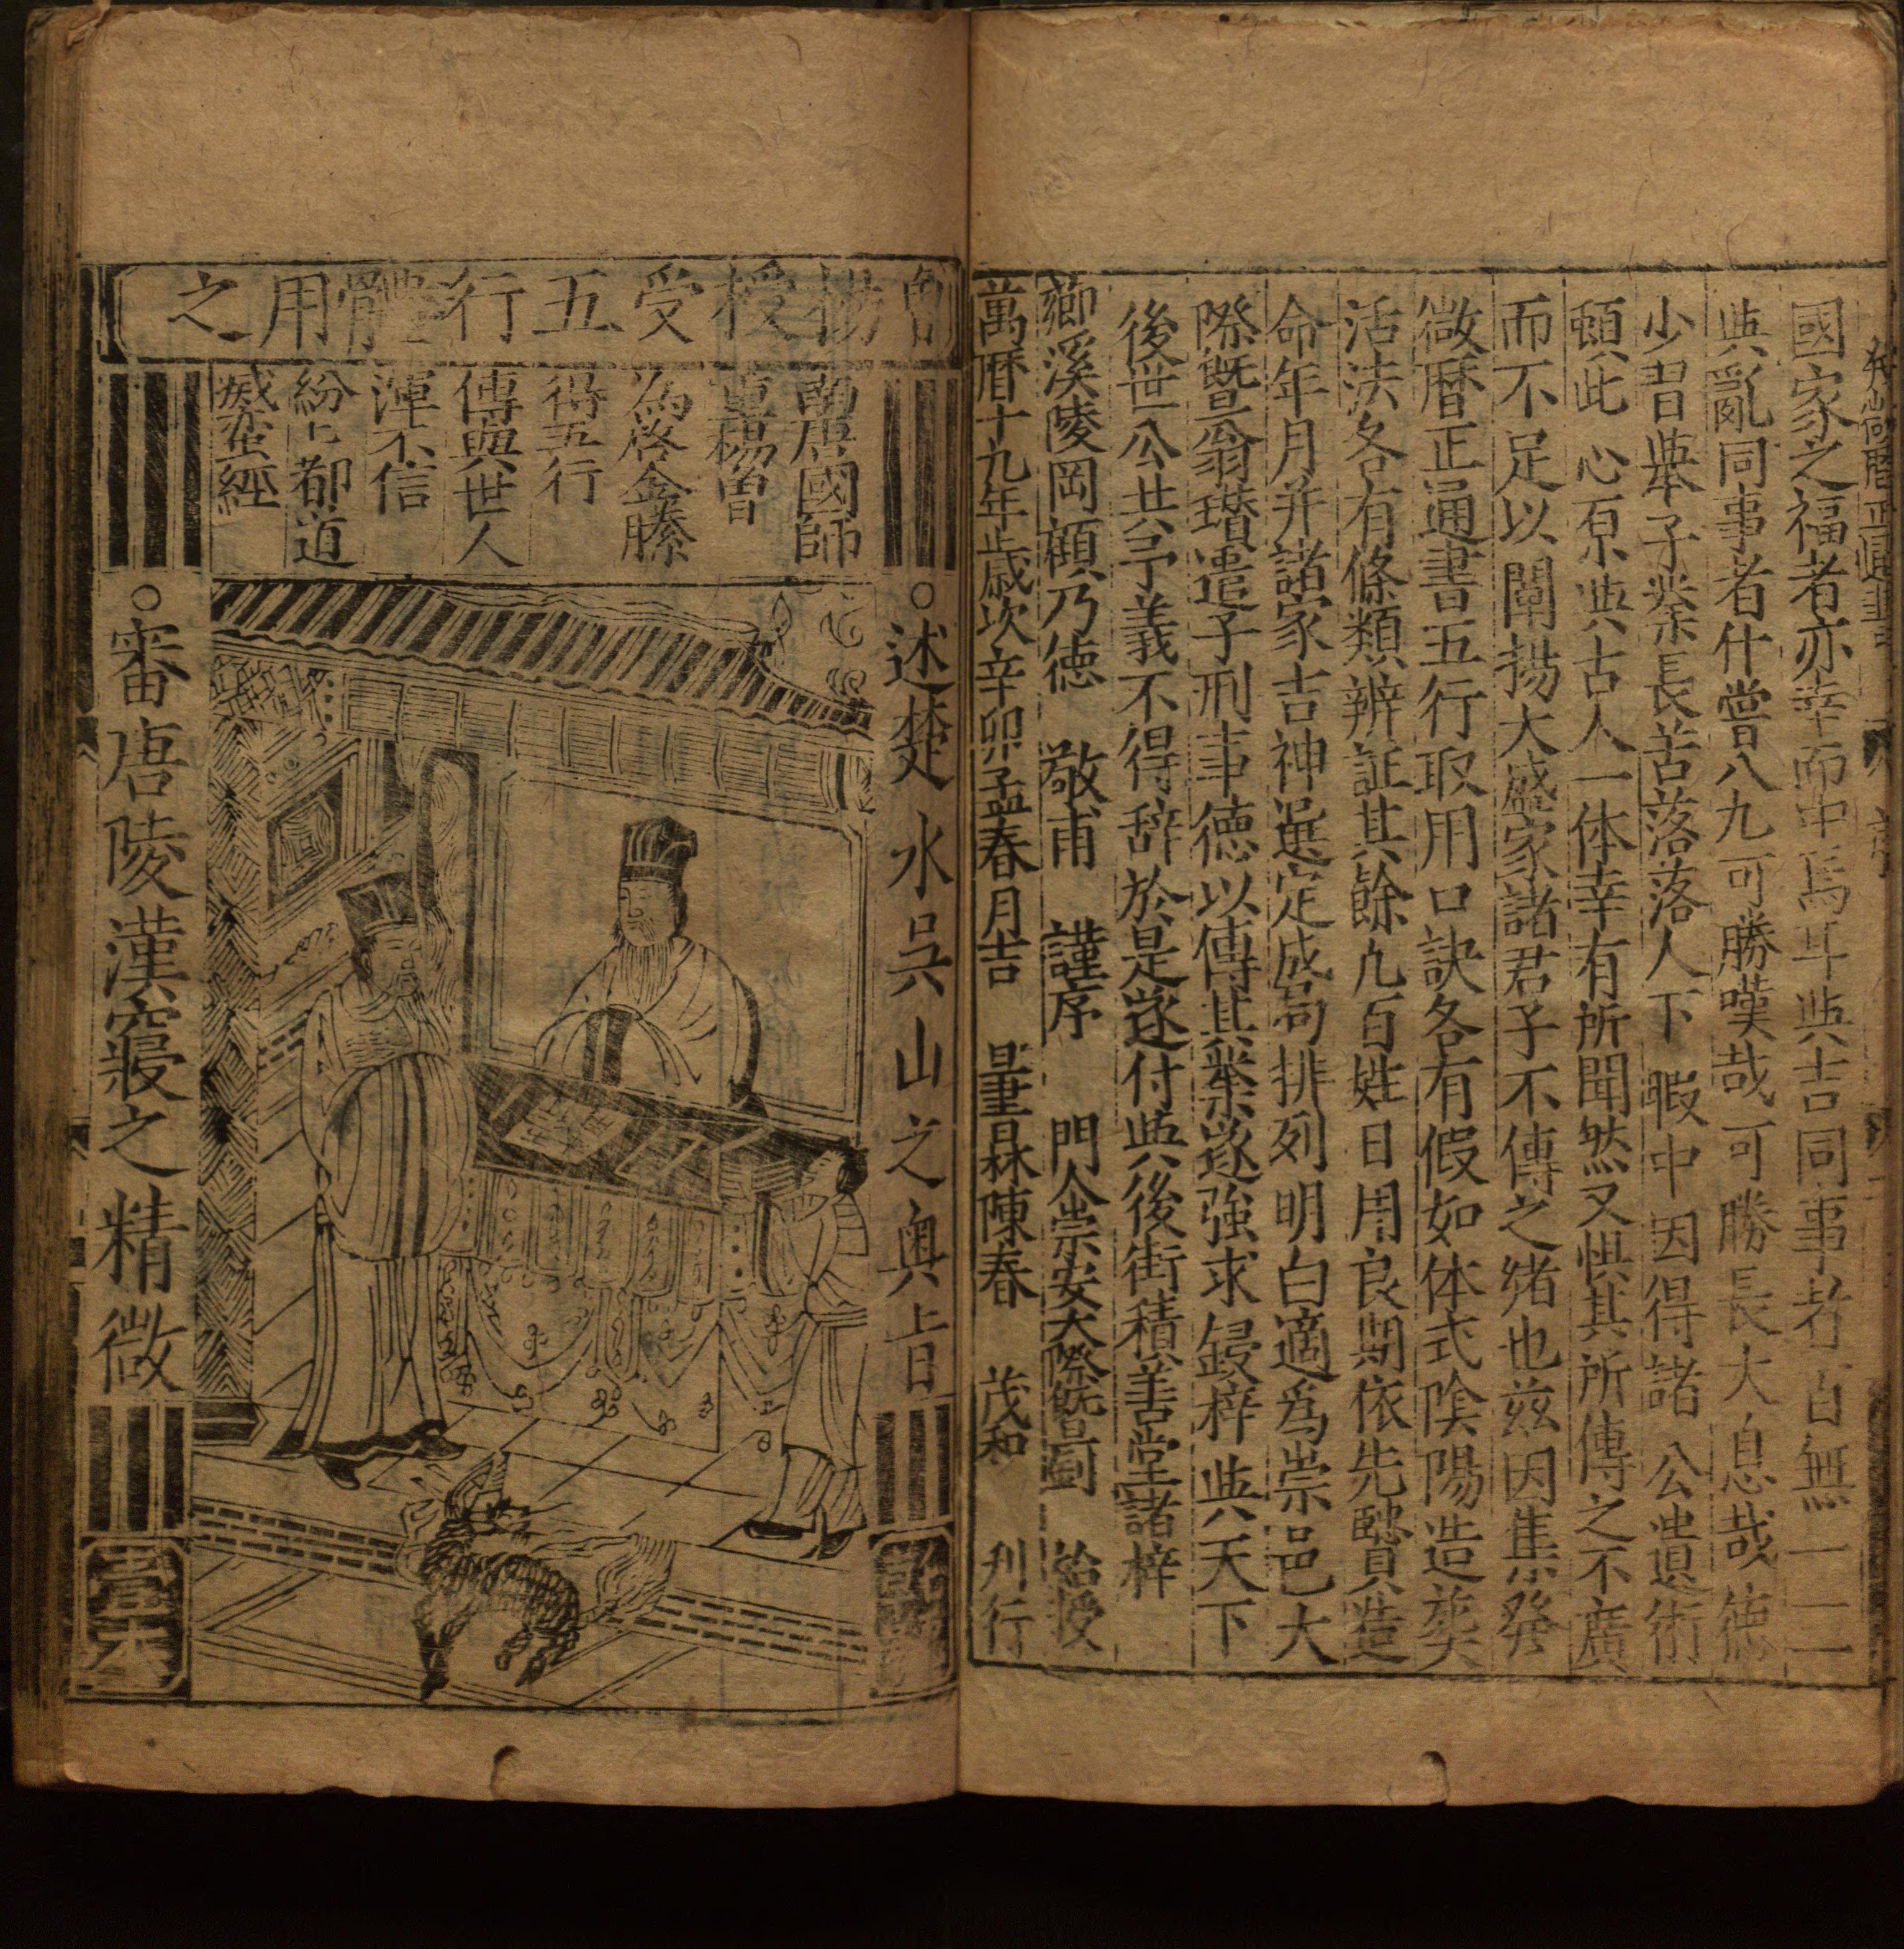 國家之福者亦幸而中焉耳與吉同事者百無一二
與亂同事者什嘗八九可勝嘆哉可勝長大息哉德
少習舉子業長苦落落人下 暇中因得諸 公遺術
頓此 心原與古人一体幸有所聞然又惧其所傳之不廣
而不足以闡揚大盛家諸君子不傳之緒也玆因集發
微暦正通書五行取用口訣各有假如体式隂陽造葬
活法各有條類辨証其餘凢百姓日用良期依先賢造
命年月并諸家吉神選定成局排列明白適爲崇邑大
際暨翁瑨遣子刑事德以傳其業遂強求鋟梓與天下
後世公共予義不得辞於是遂付與後街積善堂諸梓
薌溪陵岡顧乃德 敬甫 謹序 門人崇安大際暨 授
萬暦十九年歲次辛卯孟春月吉 陳春 茂和 刋行
楊授受五行體用之
國師
楊曾
為啓金縢
得五行
傳與世人
渾不信
紛〻都道
滅蛮經
○述楚水吳山之奥旨
○審唐陵漢寢之精微